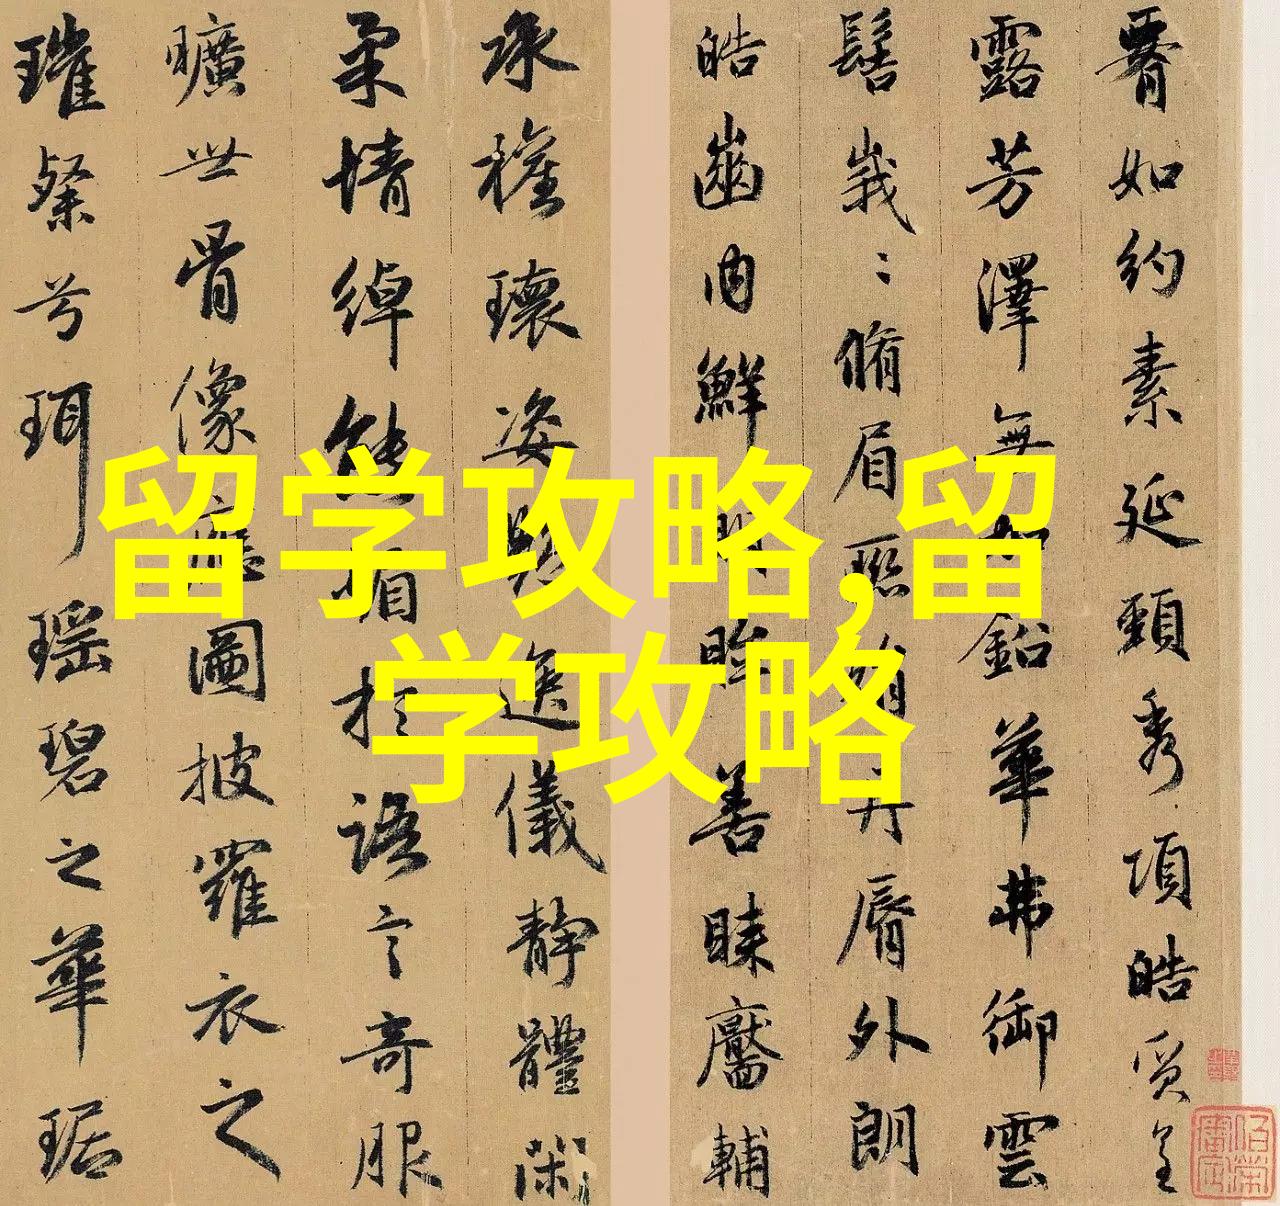 留学攻略,留
学攻略
要如約素延頸秀項皓質呈
露芳澤無加鉛華弗御雲
髻峩〻脩眉聯娟丹脣外朗
皓齒内鮮明眸善睞靨輔
承權瓌姿豔逸儀靜體閑
柔情綽態媚於語言奇服
曠世骨像應圖披羅衣之
璀粲兮珥瑶碧之華琚